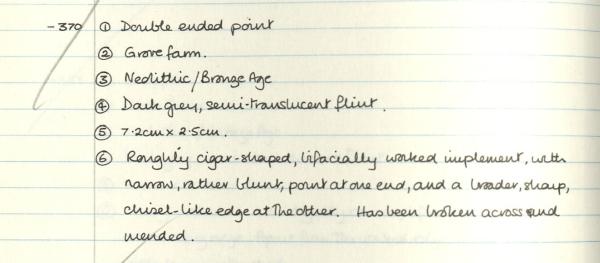 -370 ① Double ended point
② Grove farm.
③ Neolithic/Bronze Age
④ Dark grey, semi-translucent flint.
⑤ 7.2cm x 2.5cm.
⑥ Roughly cigar-shaped, bifacially worked implement, with
narrow, rather blunt, point at one end, and a broader, sharp,
chisel-like edge at the other. Has been broken across and
mended.